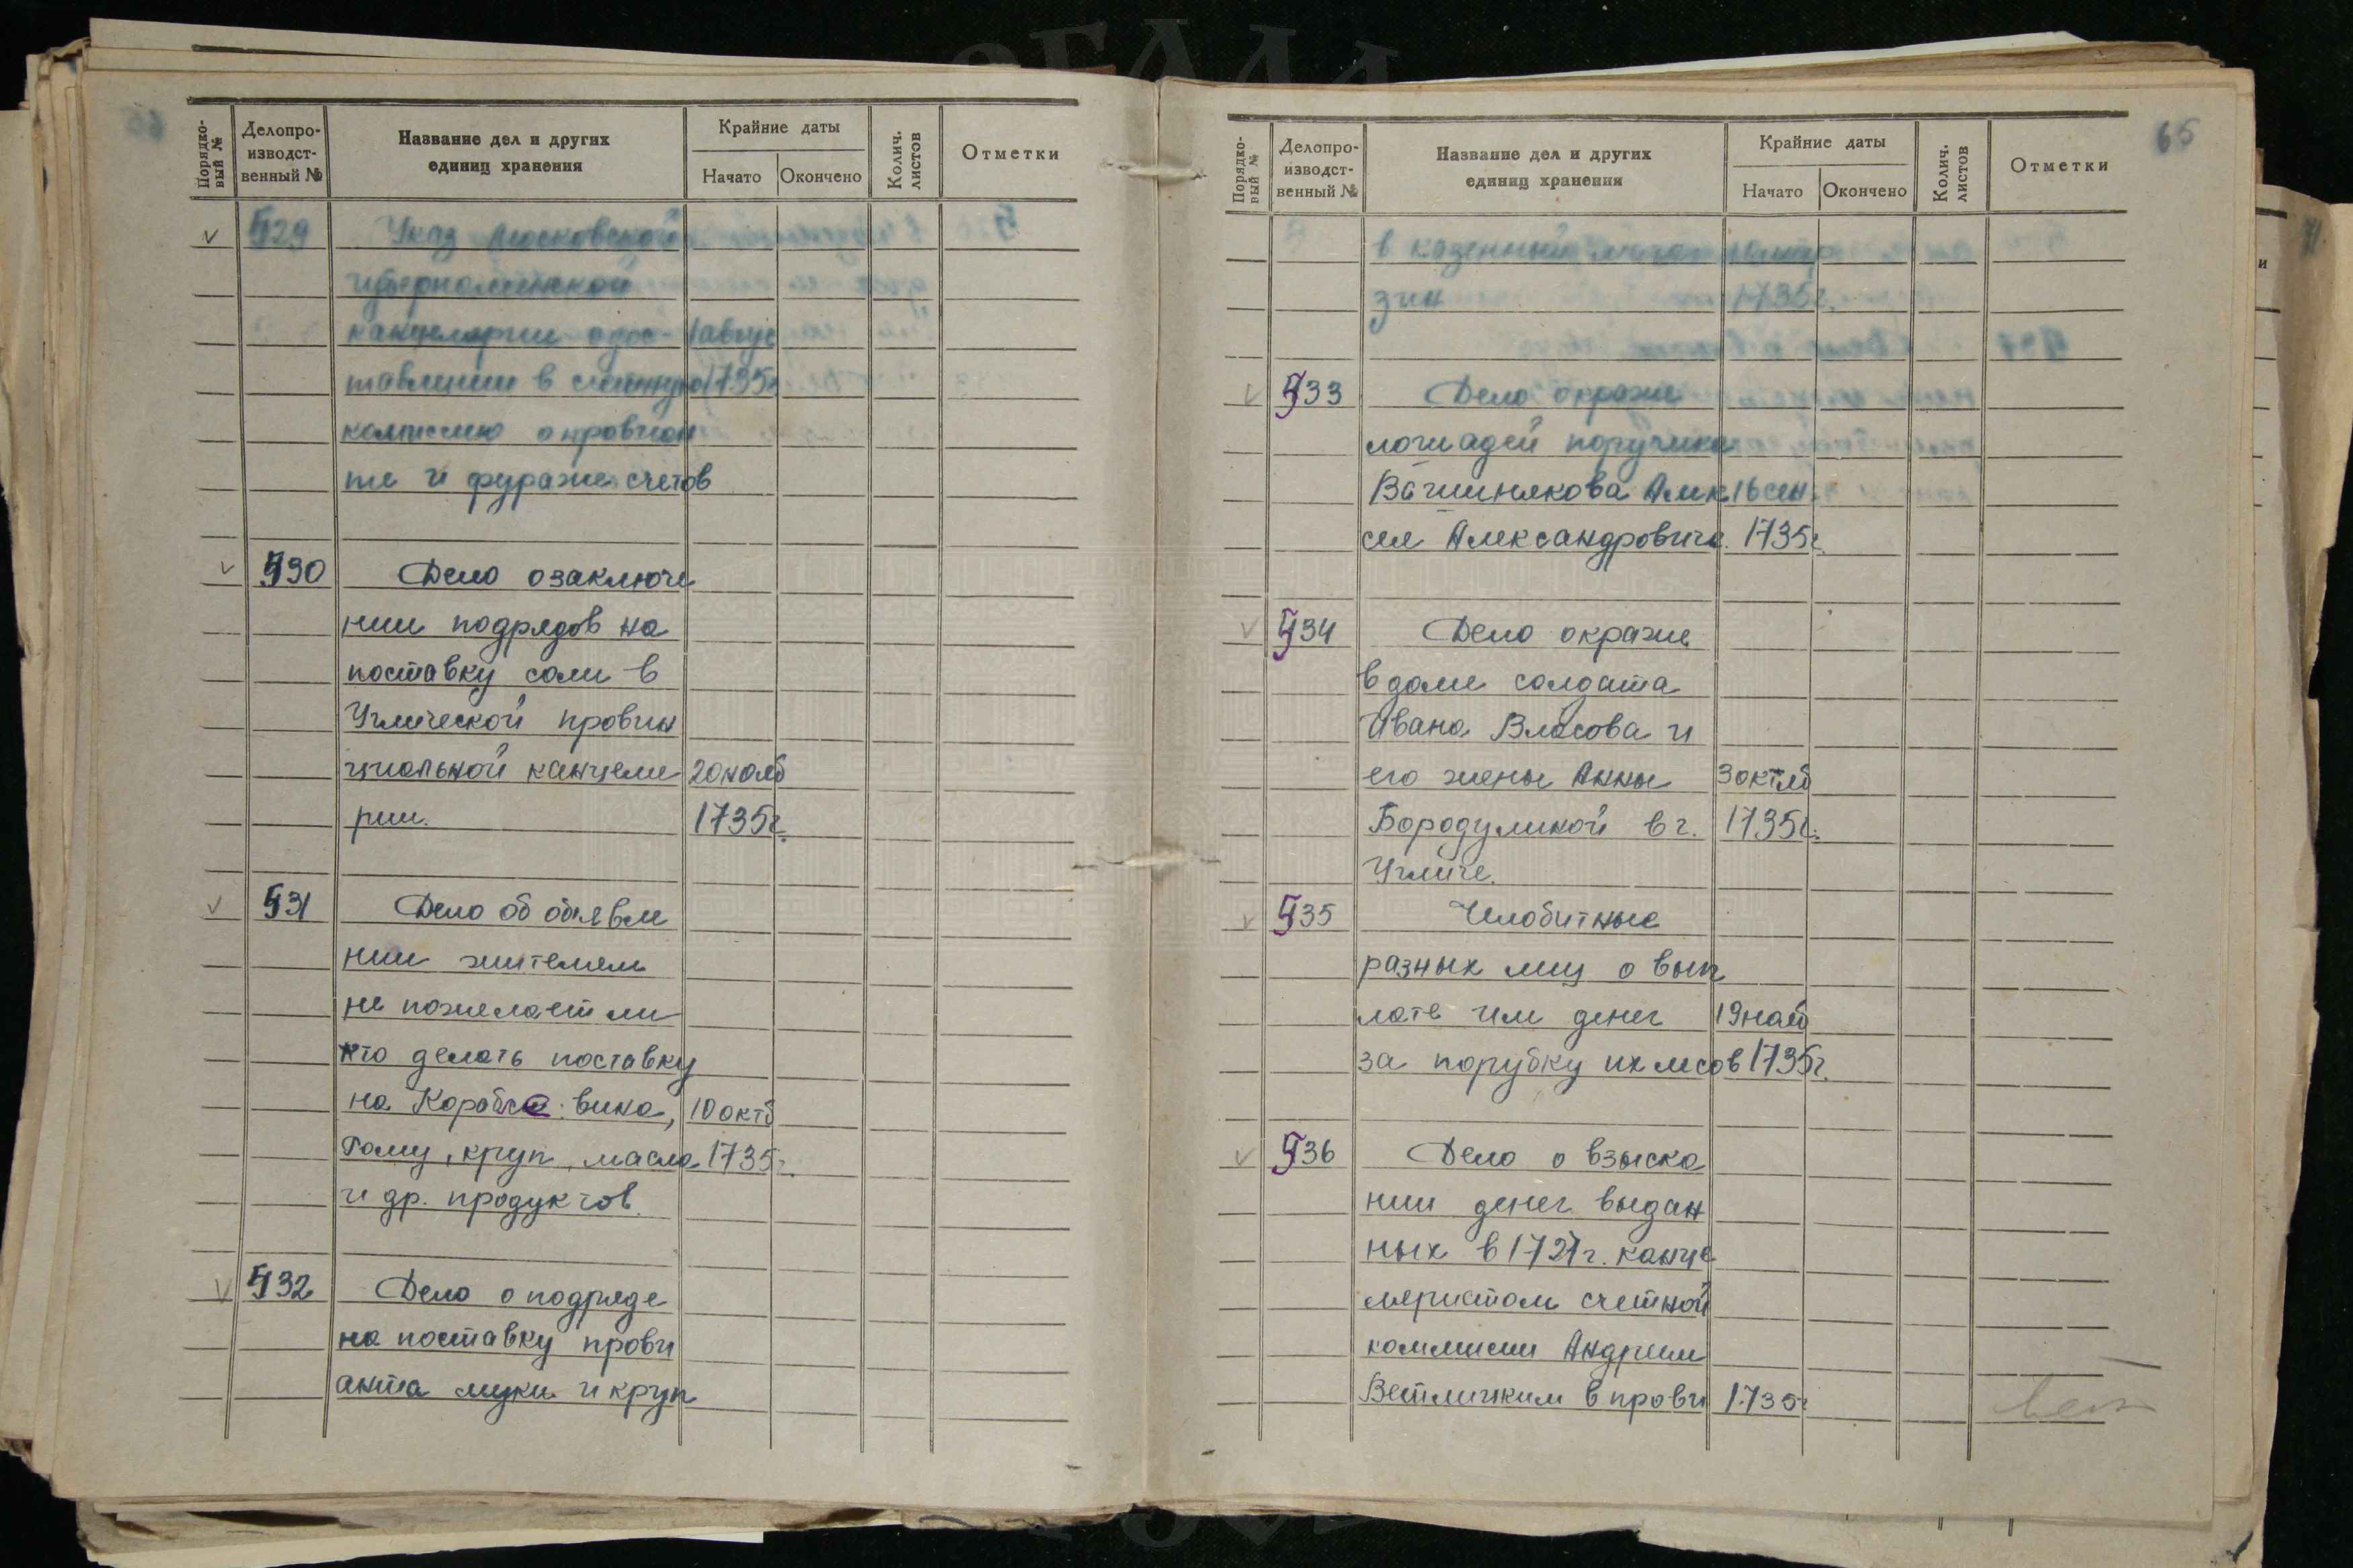 Порядко-
вый №
Делопро-
изводст-
венный №
Название дел и других
единиц хранения
Крайние даты
Начато
Окончено
Колич.
листов
Отметки
529 Указ Московской
губернаменской
канцелярии одос- 1 авгус
тавлении в счетную 1735г
комиссию о провиан
те и фураже счетов
530 Дело о заключе
нии подрядов на
поставку соли в
Угличской провин
циальной канцеля 20 нояб
рии. 1735г.
531 Дело об обявле
нии жителям
не пожелает ли
кто делать поставку
на Корабли: вина, 10 октб
Рому, круп, масла 1735г.
и др. продуктов.
532 Дело о подряде
на поставку прови
анта муки и круп
65
Порядко-
вый №
Делопро-
изводст-
венный №
Название дел и других
единиц хранения
Крайние даты
Начато
Окончено
Колич.
листов
Отметки
в казенный мага
зин 1735г.
533 Дело о краже
лошадей поручика
Алек 16 сен
сея Александровича. 1735г.
534 Дело о краже
в доме солдата
Ивана Власова и
его жены Анны 3 октяб
Бородулиной в г. 1735г.
Угличе.
535 Челобитные
разных лиц о вып
лате им денег 19 нояб
за порубку их лесов 1735г.
536 Дело о взыска
нии денег выдан
ных в 1727г. канце
леристом счетной
коммисии Андреем
в прови 1735г